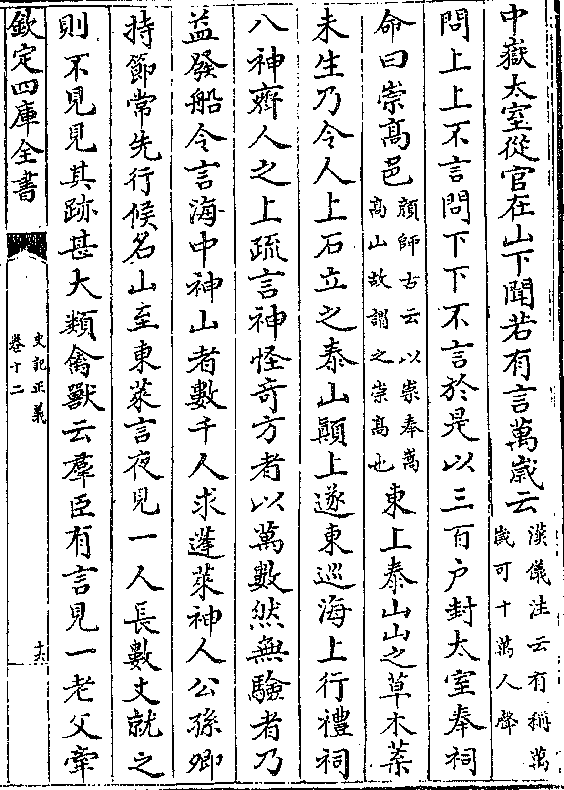 中嶽太室從官在山下聞若有言萬歲云漢儀注云有稱萬歲可十萬人聲
問上上不言問下下不言於是以三百户封太室奉祠
命曰崇髙邑顔師古云以崇奉嵩髙山故謂之崇髙也東上泰山山之草木葉
未生乃令人上石立之泰山顚上遂東巡海上行禮祠
八神齊人之上疏言神怪竒方者以萬數然無驗者乃
益發船令言海中神山者數千人求蓬萊神人公孫卿
持節常先行候名山至東萊言夜見一人長數丈就之
則不見見其跡甚大類禽獸云羣臣有言見一老父牽
欽定四庫全書
史記正義
卷十二
十六